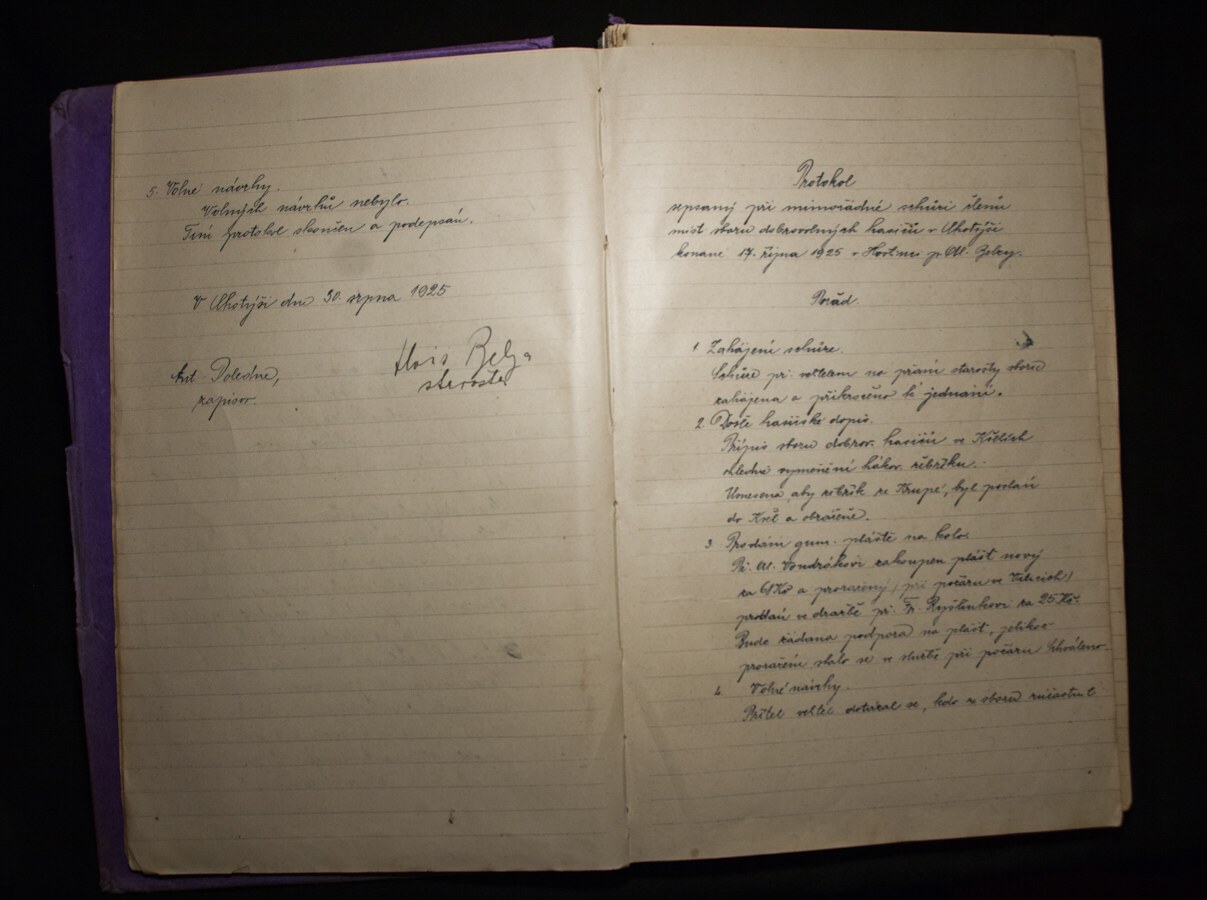 5. Volné návrhy.
Volných návrhů nebylo.
Tím protokol skončen a podepsán.
V Chotýši dne 30. srpna 1925
Ant. Poledne,
zapisov.
Alois Belza
starosta
Protokol
sepsaný při mimořádné schůzi členů
míst. sboru dobrovolných hasičů v Chotýši
konané 17. října 1925 v Hostinci p. Al. Belzy.
Pořád.
1. Zahájení schůze.
Schůze př. velitelem na přání starosty sboru
zahájena a přikročeno k jednání.
2. Došlé hasičské dopis.
Přípis sboru dobrov. hasičů ve
ohledně vyměnění hákov. žebříku.
Usneseno, aby žebřík ze Krupé, byl poslán
do a obráceně.
3 Prodání gum. pláště na kolo.
Př. Al. Vondrákovi zakoupen plášť nový
za Kč a proražený (při požáru ve Viticích)
prodán v dražbě př. Fr. za 25 Kč.
Bude žádána podpora na plášť, jelikož
proražení stalo se ve službě při požáru. Schváleno.
4. Volné návrhy.
Přítel velitel dotázal se, kdo ze sboru zúčastní